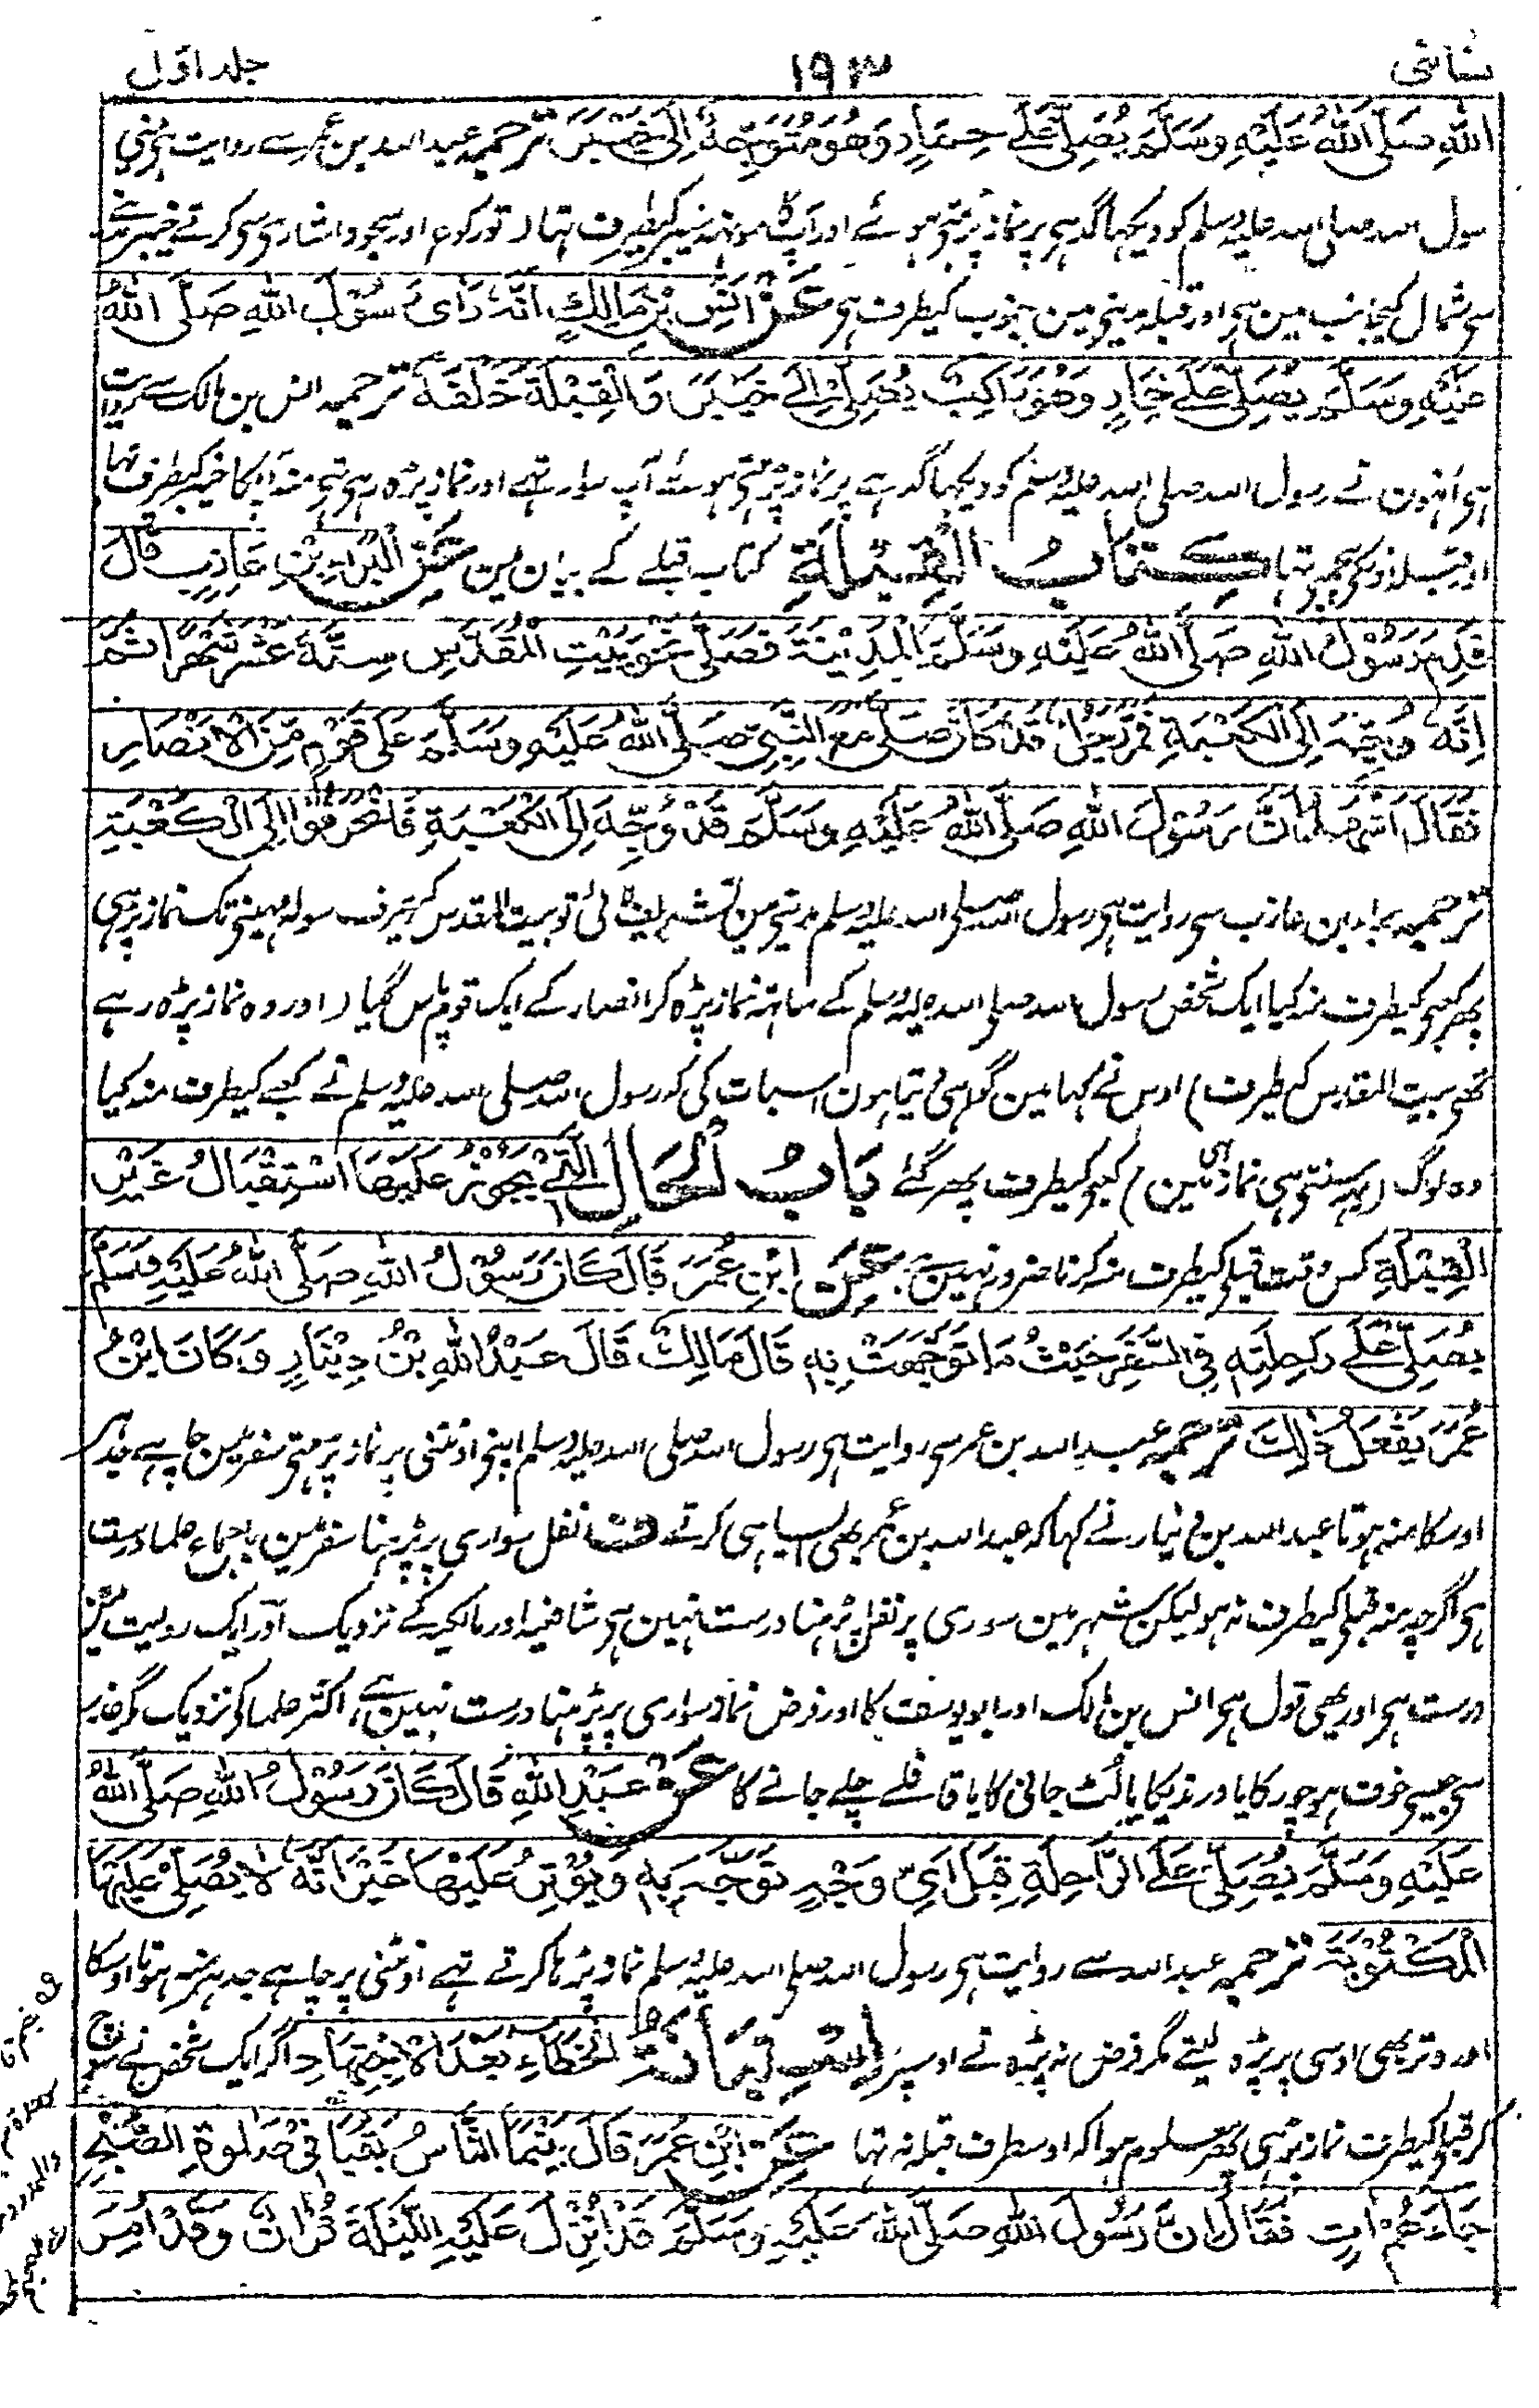 نسائی ۱۹۳ جلد اول
اللهِ صَلَّى اللهُ عَلَيْهِ وَسَلَّمَ يُصَلِّي عَلَى حِمَارٍ وَهُوَ مُتَوَجِّهٌ إِلَى خَيْبَرَ ترجمہ عبد اللہ بن عمر سے روایت ہی مینی
سول اللہ صلی اللہ علیہ وسلم کو دیکھا گدہی پر نماز پڑہتی ہوئے اور آپکا مونہہ خیبر کیطرف تہا ر تو رکوع اور سجود اشاری سی کرتے خیبر مدینے
سی شمال کیجانب مین ہی اور قبلہ مدینی مین جنوب کیطرف ہی عَنْ أَنَسِ بْنِ مَالِكٍ أَنَّهُ رَأَى رَسُوْلَ اللهِ صَلَّى اللهُ
عَلَيْهِ وَسَلَّمَ يُصَلِّي عَلَى حِمَارٍ وَهُوَ رَاكِبٌ يُصَلِّي إِلَى خَيْبَرَ وَالْقِبْلَةُ خَلْفَهُ ترجمہ انس بن مالک سے روایت
ہی اُنہون نے رسول اللہ صلی اللہ علیہ وسلم کو دیکہا گدہے پر نماز پڑہتی ہوئے آپ سوار تہے اور نماز پڑہ رہی تہی منہ آپکا خیبر کیطرف تہا
اور قبلہ اونکی پیچہی تہا كِتَابُ الْقِبْلَةِ کتاب قبلے کے بیان مین عَنِ الْبَرَاءِ بْنِ عَازِبٍ قَالَ
قَدِمَ رَسُوْلُ اللهِ صَلَّى اللهُ عَلَيْهِ وَسَلَّمَ الْمَدِيْنَةَ فَصَلَّى نَحْوَ بَيْتِ الْمَقْدِسِ سِتَّةَ عَشَرَ شَهْرًا ثُمَّ
إِنَّهُ وُجِّهَ إِلَى الْكَعْبَةِ فَمَرَّ رَجُلٌ قَدْ كَانَ صَلَّى مَعَ النَّبِيِّ صَلَّى اللهُ عَلَيْهِ وَسَلَّمَ عَلَى قَوْمٍ مِّنَ الْاَنْصَارِ
فَقَالَ أَشْهَدُ أَنَّ رَسُوْلَ اللهِ صَلَّى اللهُ عَلَيْهِ وَسَلَّمَ قَدْ وُجِّهَ إِلَى الْكَعْبَةِ فَانْحَرَفُوْا إِلَى الْكَعْبَةِ
ترجمہ براء بن عازب سی روایت ہی رسول اللہ صلی اللہ علیہ وسلم مدینی مین تشریف لائی تو بیت المقدس کیطرف سولہ مہینی تک نماز پڑہی
پھر کعبی کیطرف منہ کیا ایک شخص رسول اللہ صلی اللہ علیہ وسلم کے ساتہ نماز پڑہ کر انصار کے ایک قوم پاس گیا ( اور وہ نماز پڑہ رہے
تھی بیت المقدس کیطرف ) اوس نے کہا مین گواہی دیتا ہون اسبات کی کہ رسول اللہ صلی اللہ علیہ وسلم نے کعبے کیطرف منہ کیا
وہ لوگ ( یہہ سنتی ہی نماز ہی مین ) کعبہ کیطرف پھر گئے بَابُ الْحَالِ الَّتِي يَجُوْزُ عَلَيْهَا اسْتِقْبَالُ غَيْرِ
الْقِبْلَةِ کس وقت قبلہ کیطرف منہ کرنا ضرور نہین عَنِ ابْنِ عُمَرَ قَالَ كَانَ رَسُوْلُ اللهِ صَلَّى اللهُ عَلَيْهِ وَسَلَّمَ
يُصَلِّي عَلَى رَاحِلَتِهِ فِي السَّفَرِ حَيْثُ مَا تَوَجَّهَتْ بِهِ قَالَ مَالِكٌ قَالَ عَبْدُ اللهِ بْنُ دِيْنَارٍ وَكَانَ ابْنُ
عُمَرَ يَفْعَلُ ذٰلِكَ ترجمہ عبد اللہ بن عمر سی روایت ہی رسول اللہ صلی اللہ علیہ وسلم اپنی اونٹنی پر نماز پڑہتی سفر مین چاہے جدہر
اوسکا منہ ہوتا عبد اللہ بن دینار نے کہا کہ عبد اللہ بن عمر بھی ایسا ہی کرتے ف نفل سواری پر پڑہنا سفر مین باجماع علما درست
ہی اگرچہ منہ قبلہ کیطرف نہ ہو لیکن شہر مین سواری پر نفل پڑہنا درست نہین ہی شافعیہ اور مالکیہ کے نزدیک اور ایک روایت مین
درست ہی اور یھی قول ہی انس بن مالک اور ابو یوسف کا اور فرض نماز سواری پر پڑہنا درست نہین ہے اکثر علما کی نزدیک مگر عذر
سی جیسی خوف ہو چور کا یا درندیکا یا لُٹ جانی کا یا قافلے چلے جانے کا عَنْ عَبْدِ اللهِ قَالَ كَانَ رَسُوْلُ اللهِ صَلَّى اللهُ
عَلَيْهِ وَسَلَّمَ يُصَلِّي عَلَى الرَّاحِلَةِ قِبَلَ أَيِّ وَجْهٍ تَوَجَّهَ بِهِ وَيُوْتِرُ عَلَيْهَا غَيْرَ أَنَّهُ لَا يُصَلِّيْ عَلَيْهَا
الْمَكْتُوْبَةَ ترجمہ عبد اللہ سے روایت ہی رسول اللہ صلی اللہ علیہ وسلم نماز پڑہا کرتے تہے اونٹنی پر چاہے جدہر منہ ہوتا اوسکا
اور وتر بھی اوسی پر پڑہ لیتے مگر فرض نہ پڑہتے اوسپر اسْتِبَانَةُ الْخَطَاءِ بَعْدَ الْاِجْتِهَادِ اگر ایک شخص نے سوچ
کر قبلہ کیطرف نماز پڑہی پھر معلوم ہوا کہ اوسطرف قبلہ نہ تہا عَنِ ابْنِ عُمَرَ قَالَ بَيْنَمَا النَّاسُ بِقُبَاءٍ فِيْ صَلٰوةِ الصُّبْحِ
جَاءَهُمْ اٰتٍ فَقَالَ إِنَّ رَسُوْلَ اللهِ صَلَّى اللهُ عَلَيْهِ وَسَلَّمَ قَدْ أُنْزِلَ عَلَيْهِ اللَّيْلَةَ قُرْاٰنٌ وَقَدْ أُمِرَ